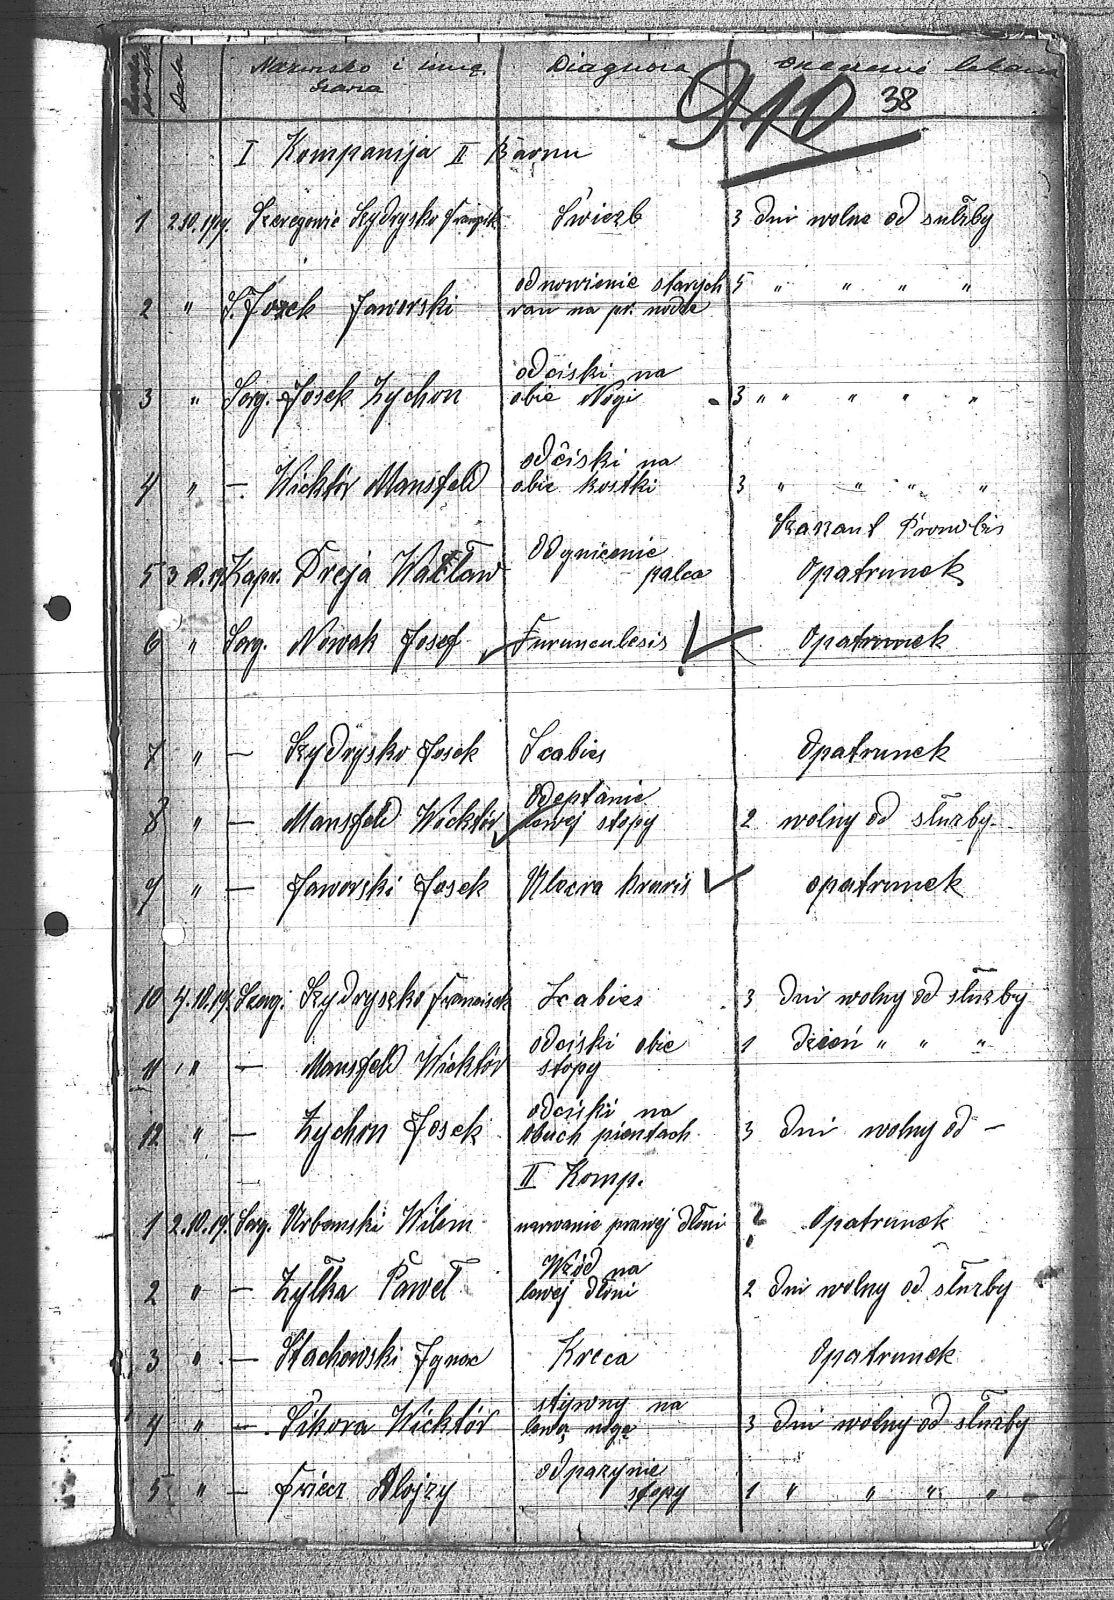 Data Nazwisko i imię Diagnoza
910 38
I Kompanija II Baonu
1 2.10.19. Szeregowic Szydrysko Swiezb 3 dni wolne od sułżby
2 " Josek Jaworski odnowienie starych 5 " " " "
ran na pr. nodze
3 " Serg. Josek Zychon odciski na
obie Nogi 3 " " " " "
4 " — Wicktór Mansfeld odciski na
obie kostki 3 " " " "
5 3.10.19. Kapr. Dreja Wacław Odgnicenie
palca Opatrunek
6 " Serg. Nowak Josef Furunculesis Opatrunek
7 " — Szydrysko Josek Scabies Opatrunek
8 " — Mansfeld Wicktór Odeptanie
lewej stopy 2 wolny od służby.
9 " — Jaworski Josek Ulocra kruris opatrunek
10 4.10.19. Szerg. Szydryszko Francisek Scabies 3 dni wolny od służby
11 " — Mansfeld Wicktór odciski obie 1 dzień " " "
stopy
12 " — Zychon Josek odciski na
obuch pientach 3 dni wolny od —
II Komp.
1 2.10.19. Serg. Urbanski Wilem narwanie prawej dłoni ? Opatrunek
2 " — Zyłka Paweł Wzód na
lewej dłoni 2 dni wolny od służby
3 " — Stachowski Ignac Kreca Opatrunek
4 " — Sikora Wicktór stywny na
lewą nogę 3 dni wolny od służby
5 " — Friecz Alojzy odpazynie
stopy 1 " " " "